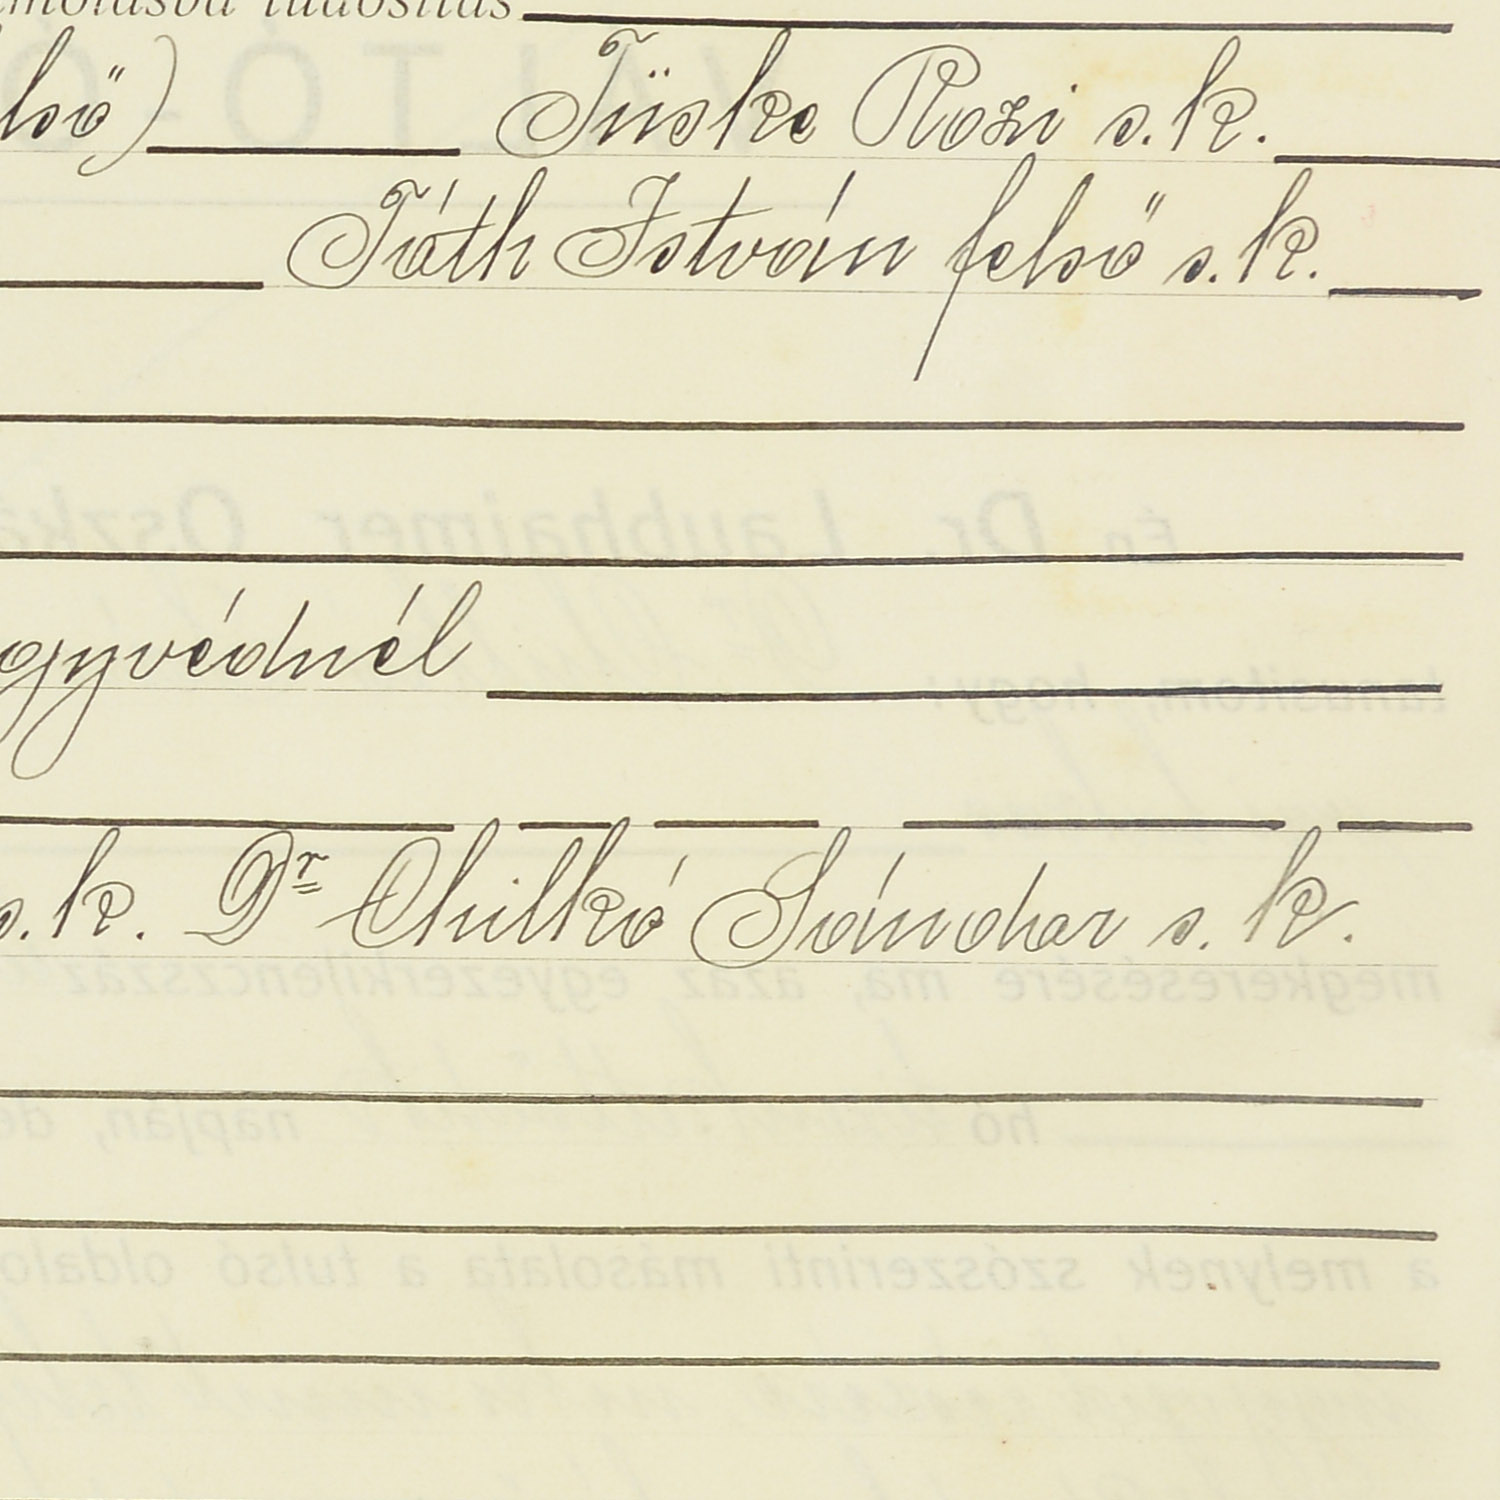 tudósitás
lső) Tüske Rozi s.k.
Tóth István felső s.k.
gyvédnél
s.k. Dr Chilkó Sándor s.k.